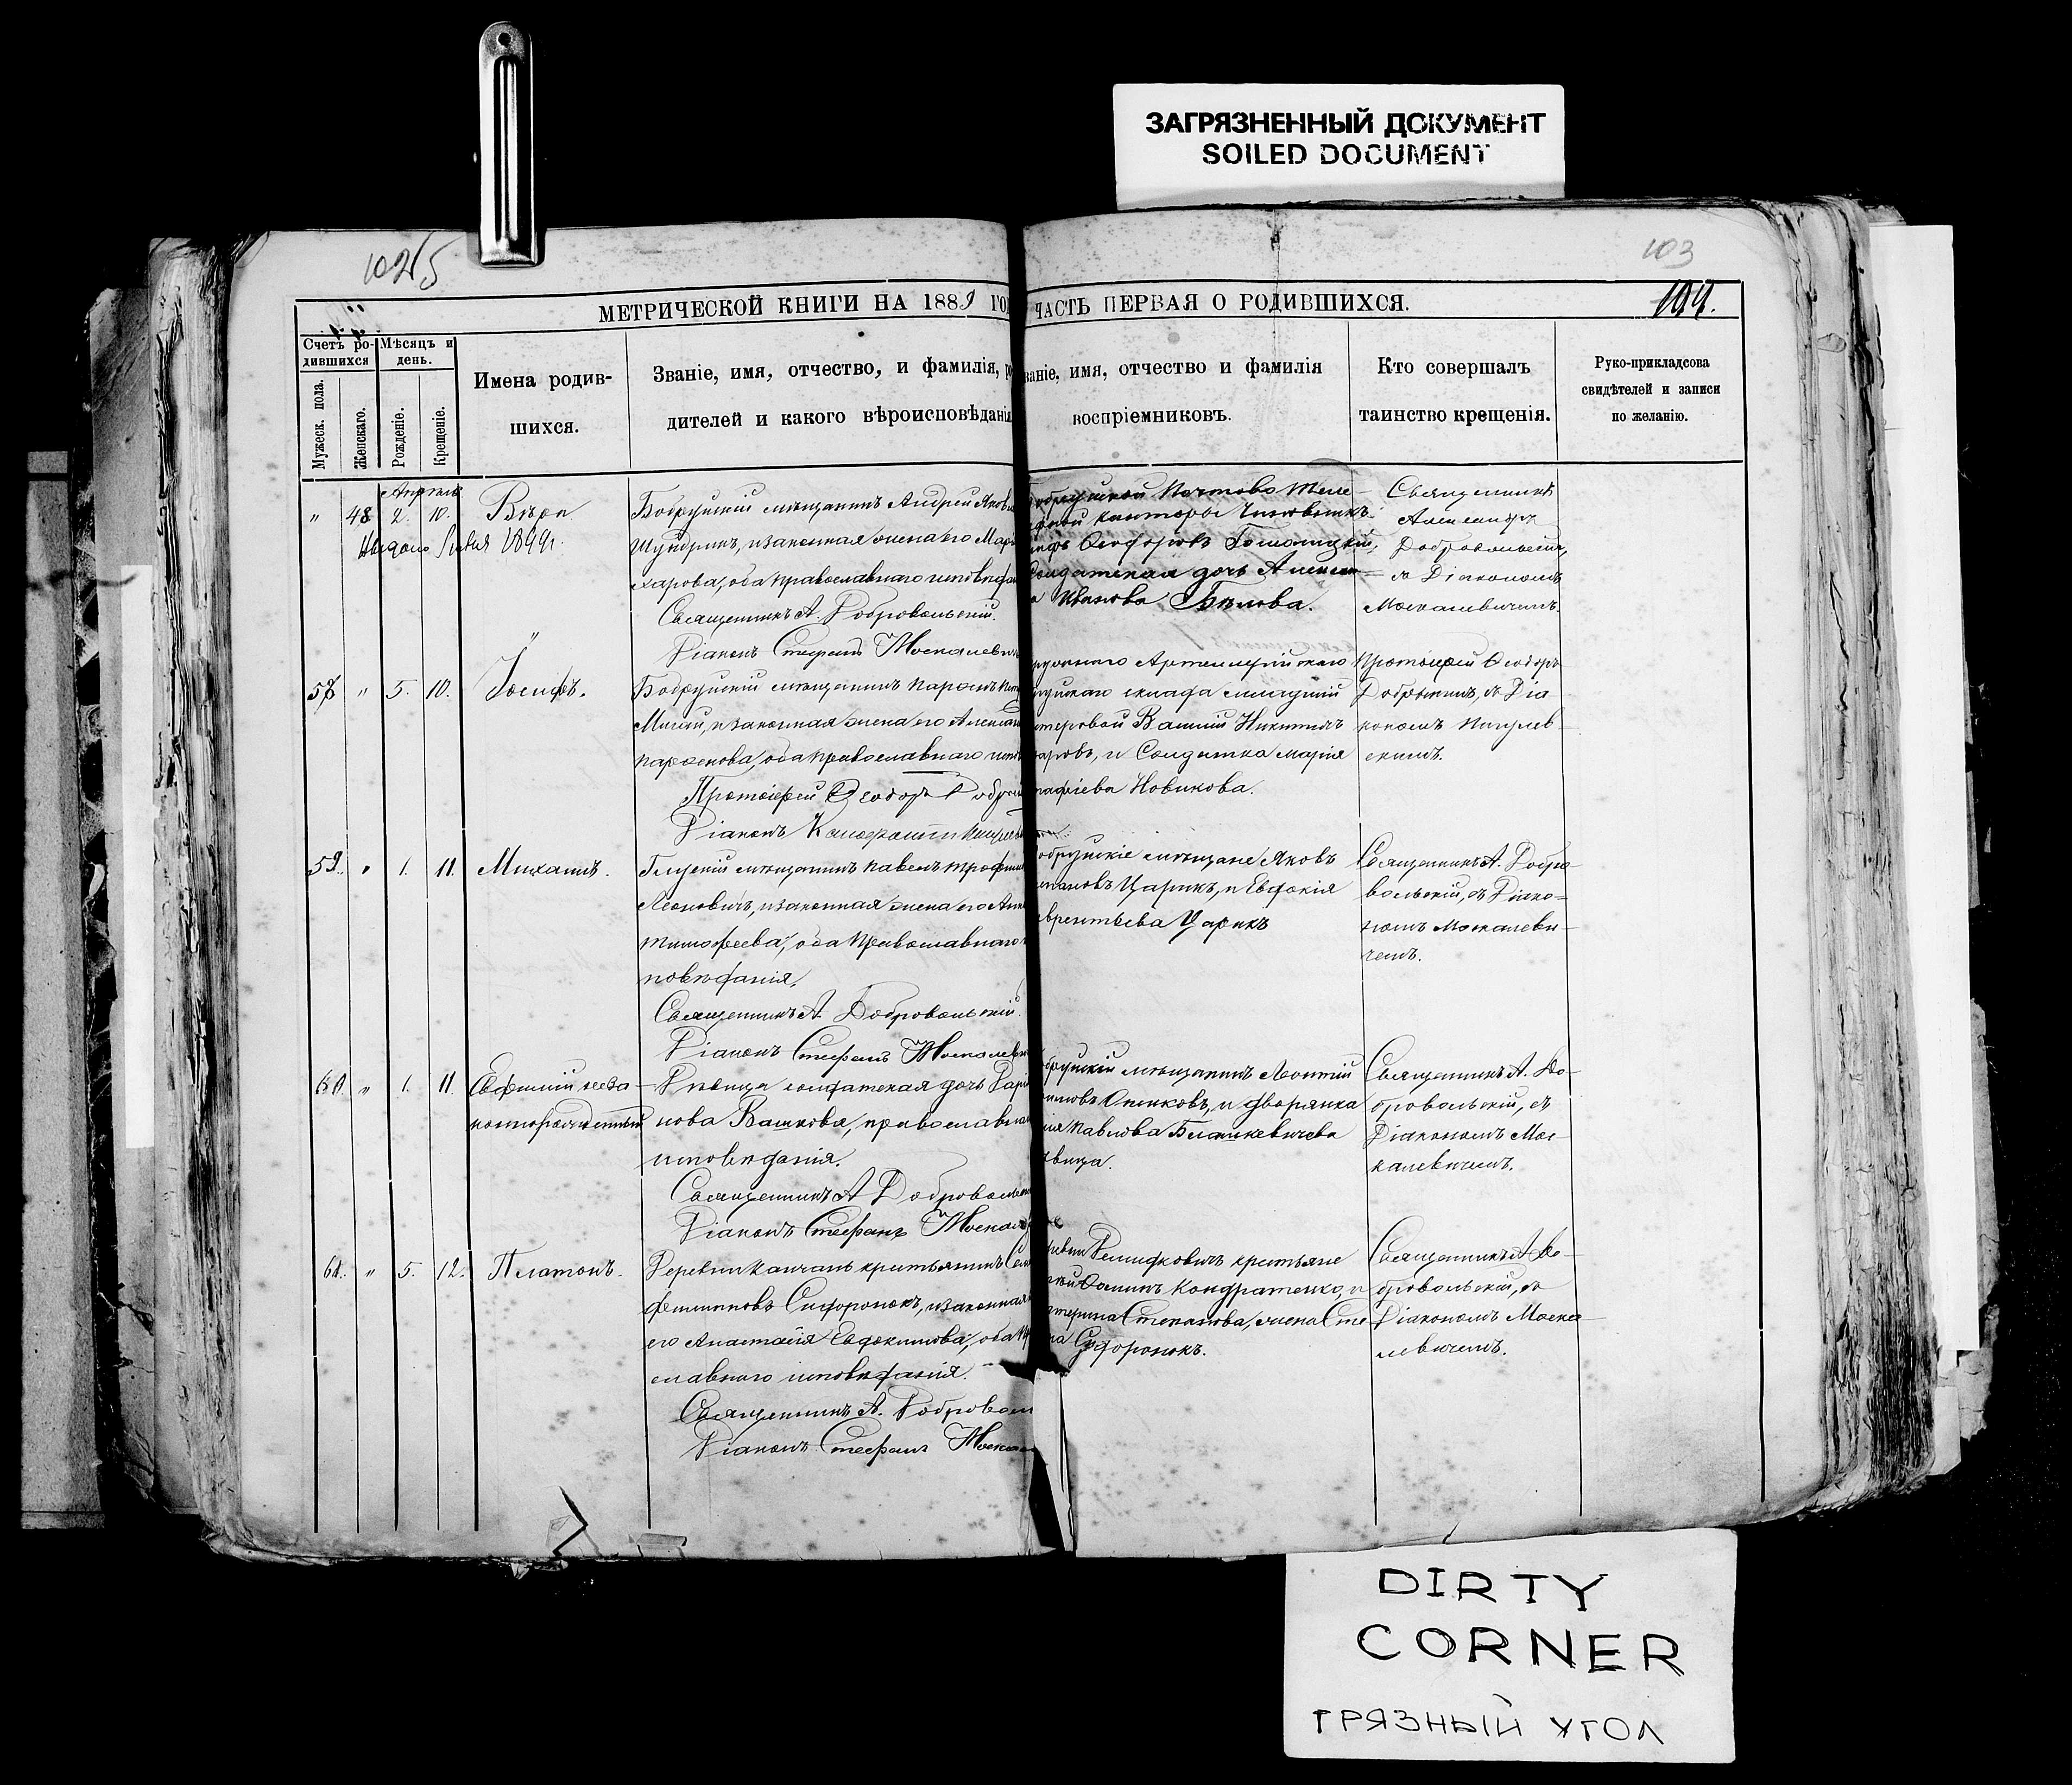 ЗАГРЯЗНЕННЫЙ ДОКУМЕНТ
SOILED DOCUMENT
103
МЕТРИЧЕСКОЙ КНИГИ НА 1889 ГОД
ЧАСТЬ ПЕРВАЯ О РОДИВШИХСЯ.
Счетъ ро-
дившихся
Мѣсяцъ и
день.
Мужеск. пола.
Женскаго.
Рожденіе.
Крещеніе.
Имена родив-
шихся.
Званіе, имя, отчество, и фамилія, ро
дителей и какого вѣроисповѣданія
ваніе, имя, отчество и фамилія
воспріемниковъ.
Кто совершалъ
таинство крещенія.
Руко-прикладсова
свидѣтелей и записи
по желанію.
Апрѣль
" 48 2. 10. Вѣра
Бобруйскій мѣщанинъ Андрей Яковл
Шундрикъ, и законная жена его Мар
харова, оба православнаго исповѣдан
Священникъ А. Добровольскій.
Діаконъ Стефанъ Москалеви
обруйской Почтово Теле-
фной конторы Чиновникъ
ифъ Ѳеодоровъ Гомолицкій,
Солдатская дочь Алексан-
а Иванова Бѣлова.
Священникъ
Александръ
Добровольскій,
съ Діакономъ
Москалевичемъ.
" 5. 10. Іосифъ.
Бобруйскій мѣщанинъ
и законная жена его Александ
оба православнаго испо
Протоіерей Ѳеодоръ Добры
Діаконъ
руйскаго Артиллерійскаго
руйскаго склада
Василій Никитинъ
аровъ, и Солдатка Марія
афіева Новикова.
Протоіерей Ѳеодоръ
съ Діа
кономъ Пигулев-
скимъ.
59. " 1. 11. Михаилъ.
Глускій мѣщанинъ Павелъ Трофим
Леоновичъ, и законная жена его Анн
Тимофеева, оба Православнаго
повѣданія,
Священникъ А. Добровольскій.
Діаконъ Стефанъ Москалеви
обруйскіе мѣщане Яковъ
епановъ Царикъ, и Евдокія
врентьева Царикъ
Священникъ А. Добро
вольскій, съ Діако-
номъ Москалеви-
чемъ.
60. " 1. 11. Евфимій неза-
коннорожденный
Дѣвица солдатская дочь Дарі
нова Вашкова, православна
исповѣданія.
Священникъ А Добровольс
Діаконъ Стефанъ Москале
обруйскій мѣщанинъ Леонтій
и дворянка
ія Павлова Бѣлинкевичева
дѣвица.
Священникъ А. До-
бровольскій, съ
Діакономъ Мос-
калевичемъ.
61. " 5. 12. Платонъ.
Деревни Качанъ крестьянинъ Сем
Филипповъ Сидоронокъ, и законная
его Анастасія Евдокимова, оба пр
славнаго исповѣданія.
Священникъ А. Добровол
Діаконъ Стефанъ Москал
ревни Демидковичъ крестьяне
Кондратенко, и
атерина Степанова, жена Сте
на Сидоронокъ.
Священникъ А До-
бровольскій, съ
Діакономъ Моска
левичемъ.
DIRTY
CORNER
ГРЯЗНЫЙ УГОЛ